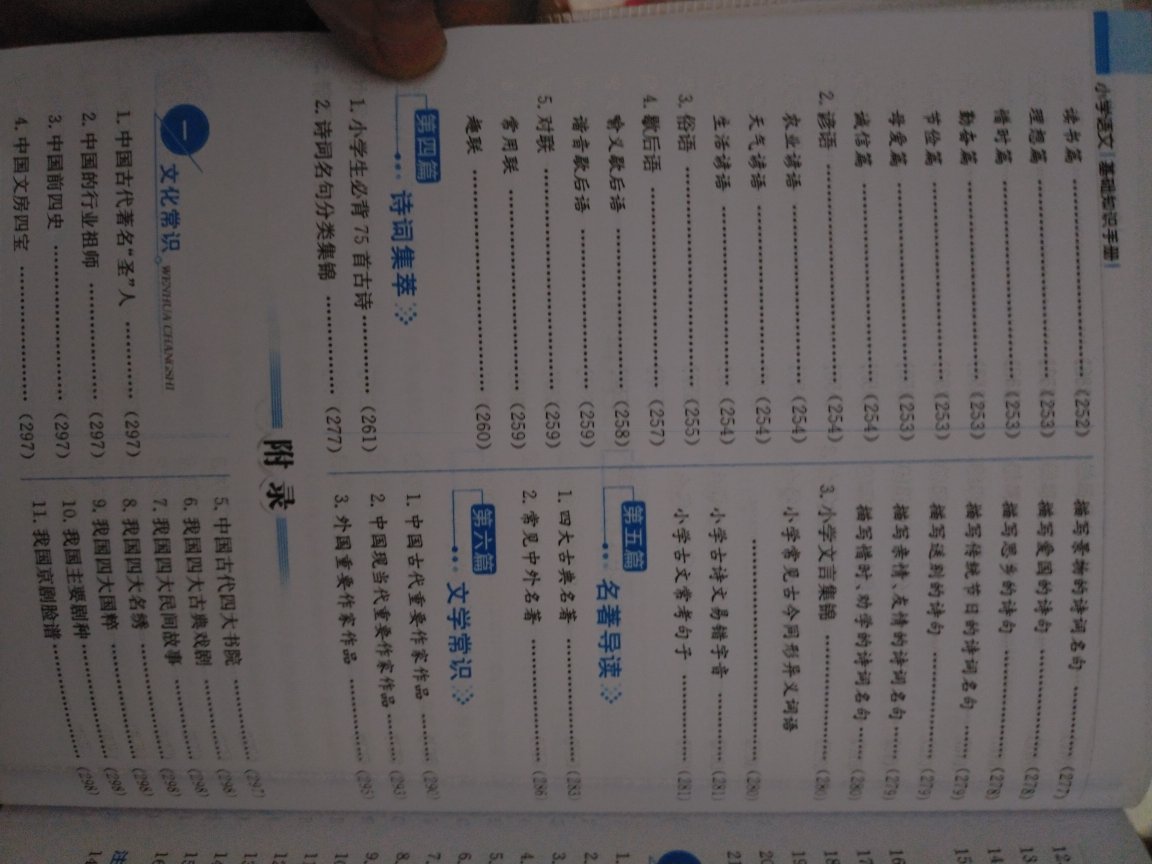 小学语文 基础知识手册
读书篇 (252)
理想篇 (253)
惜时篇 (253)
勤奋篇 (253)
节俭篇 (253)
母爱篇 (253)
诚信篇 (254)
2. 谚语 (254)
农业谚语 (254)
天气谚语 (254)
生活谚语 (254)
3. 俗语 (255)
4. 歇后语 (257)
喻义歇后语 (258)
谐音歇后语 (259)
5. 对联 (259)
常用联 (259)
趣联 (260)
第四篇 诗词集萃
1. 小学生必背75首古诗 (261)
2. 诗词名句分类集锦 (277)
描写景物的诗词名句 (277)
描写爱国的诗句 (278)
描写思乡的诗句 (278)
描写传统节日的诗词名句 (279)
描写送别的诗句 (279)
描写亲情、友情的诗词名句 (279)
描写惜时、劝学的诗词名句 (280)
3. 小学文言集锦 (280)
小学常见古今同形异义词语
(280)
小学古诗文易错字音 (281)
小学古文常考句子 (281)
第五篇 名著导读
1. 四大古典名著 (283)
2. 常见中外名著 (286)
第六篇 文学常识
1. 中国古代重要作家作品 (290)
2. 中国现当代重要作家作品 (293)
3. 外国重要作家作品 (295)
附录
一 文化常识 WENHUA CHANGSHI
1. 中国古代著名“圣”人 (297)
2. 中国的行业祖师 (297)
3. 中国前四史 (297)
4. 中国文房四宝 (297)
5. 中国古代四大书院 (297)
6. 我国四大古典戏剧 (298)
7. 我国四大民间故事 (298)
8. 我国四大名绣 (298)
9. 我国四大国粹 (298)
10. 我国主要剧种 (298)
11. 我国京剧脸谱 (298)